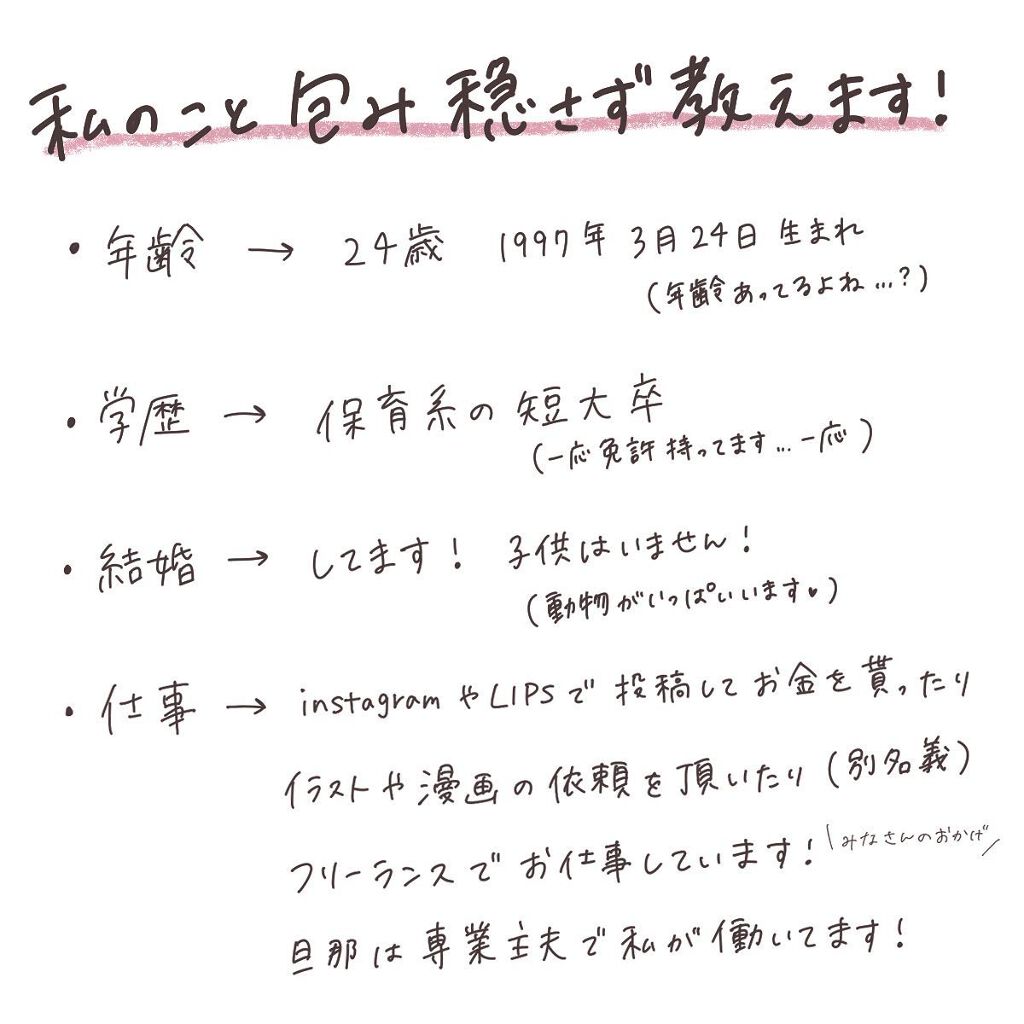 私のこと包み穏さず教えます！
・年齢 → 24歳 1997年3月24日生まれ
（年齢あってるよね…？）
・学歴 → 保育系の短大卒
（一応免許持ってます…一応）
・結婚 → してます！ 子供はいません！
（動物がいっぱいいます♥）
・仕事 → instagramやLIPSで投稿してお金を貰ったり
イラストや漫画の依頼を頂いたり（別名義）
フリーランスでお仕事しています！ \みなさんのおかげ/
旦那は専業主夫で私が働いてます！